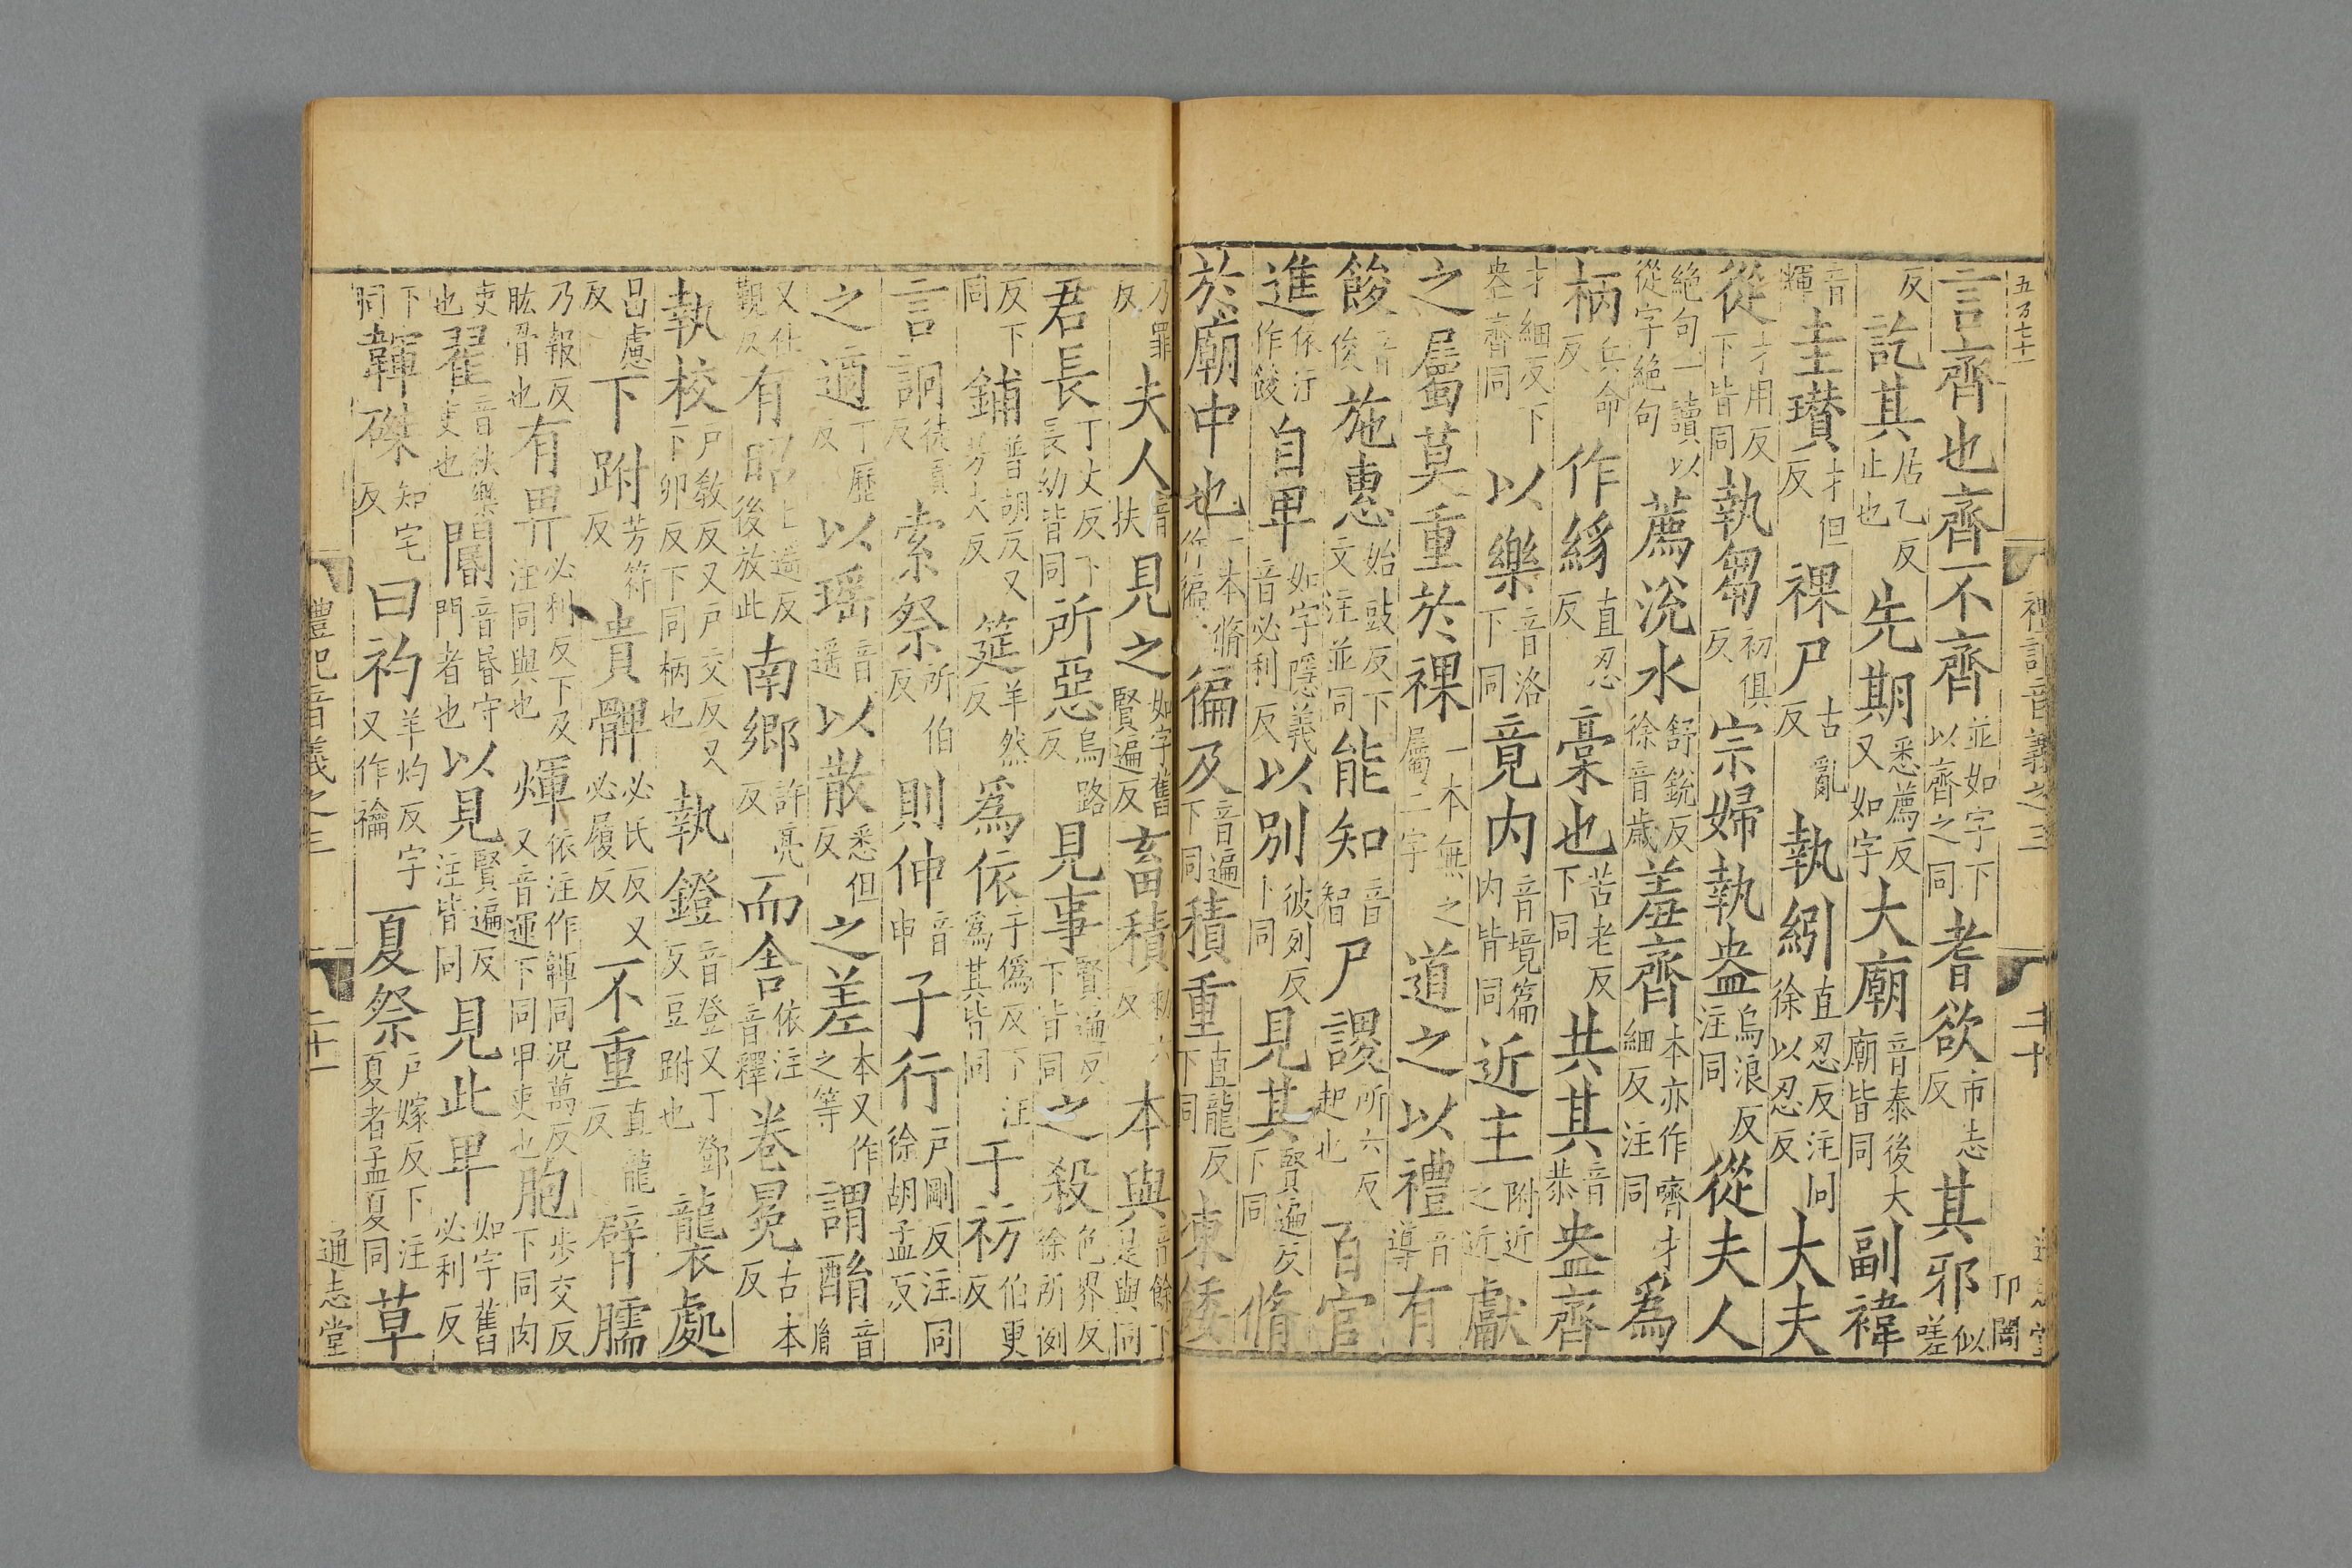 言齊也齊不齊並如字下以齊之同耆欲市志反其邪似嗟
反訖其居乙反止也先期悉薦反又如字大廟音泰後大廟皆同副褘
音輝圭瓚才但反祼尸古亂反執紖直忍反注同徐以忍反大夫
從才用反下皆同執芻初俱反宗婦執盎烏浪反注同從夫人
絶句一讀以從字絶句薦涚水舒銳反徐音歲羞齊本亦作嚌才細反注同爲
柄兵命反作緣直忍反槀也苦老反下同共其音恭盎齊
才細反下盎齊同以樂音洛下同竟内音境篇内皆同近主附近之近獻
之屬莫重於祼一本無之屬二字道之以禮音導有
餕音俊施惠始豉反下文注並同能知音智尸謖所六反起也百官
進依注作餕自卑如字隱義音必利反以別彼列反下同見其賢遍反下同脩
於廟中也一本脩作徧徧及音遍下同積重直龍反下同凍餒
乃罪反夫人音扶見之如字舊賢遍反畜積敕六反本與音餘下是與同
君長丁丈反下長幼皆同所惡烏路反見事賢遍反下皆同之殺色界反徐所例
反下同鋪普胡反又芳夫反筵羊然反爲依于僞反下注爲其皆同于祊伯更反
言詷徒貢反索祭所伯反則伸音申子行戸剛反注同徐胡孟反
之適丁歷反以瑶音遥以散悉但反之差本又作之等謂酳音胤
又仕覲反有昭上遥反後放此南鄉許亮反而舍依注音釋卷冕古本反
執校戸敎反又戸交反又下卯反下同柄也執鐙音登又丁鄧反豆跗也襲處
昌慮反下跗芳符反貴髀必氏反又必履反不重直龍反臂臑
乃報反肱骨也有畀必利反下及注同與也煇依注作韗同况萬反又音運下同甲吏也胞步交反下同肉
吏也翟音狄樂吏也閽音昏守門者也以見賢遍反注皆同見此卑如字舊必利反
下同韗磔知宅反曰礿羊灼反字又作禴夏祭戸嫁反下注夏者孟夏同草
禮記音義之三
二十
禮記音義之三
二十一
通志堂